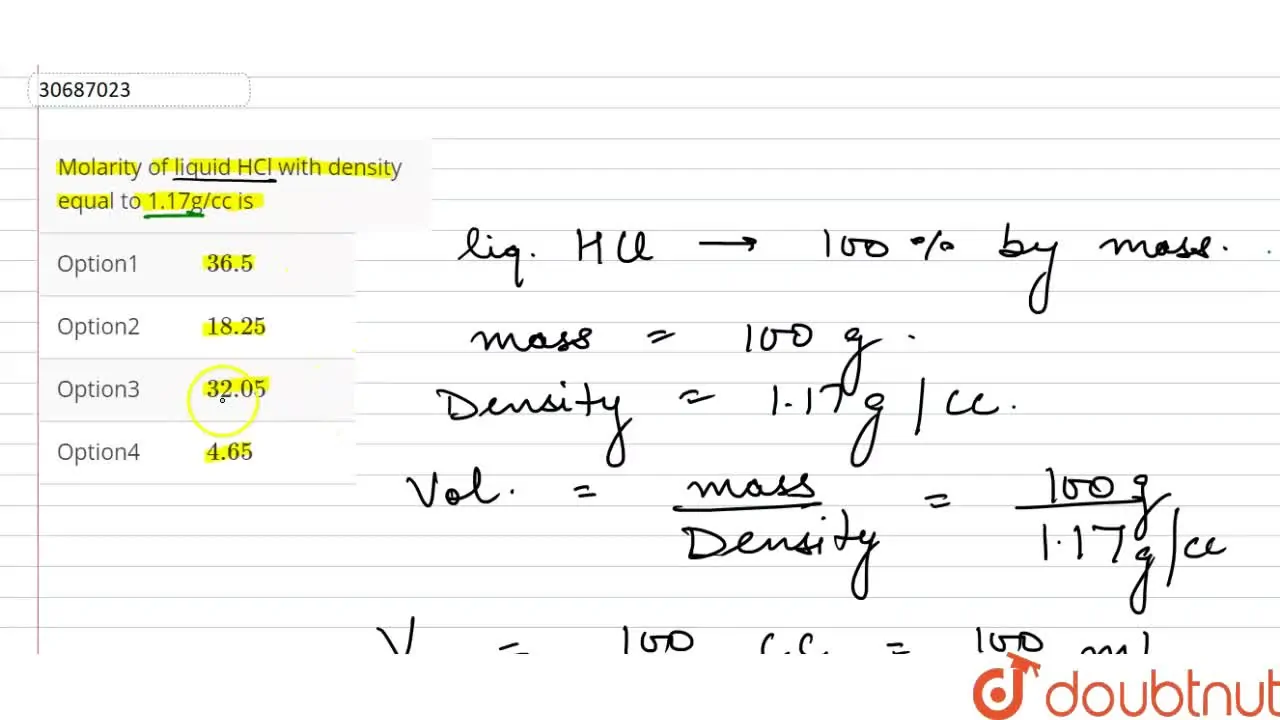 30687023
Molarity of liquid HCl with density
equal to 1.17g/cc is
Option1 36.5
Option2 18.25
Option3 32.05
Option4 4.65
liq. HCl → 100% by mass.
mass = 100 g.
Density = 1.17 g/cc.
Vol. = mass/Density = 100 g/1.17 g/cc
V = 100 c.c. = 100 ml
doubtnut